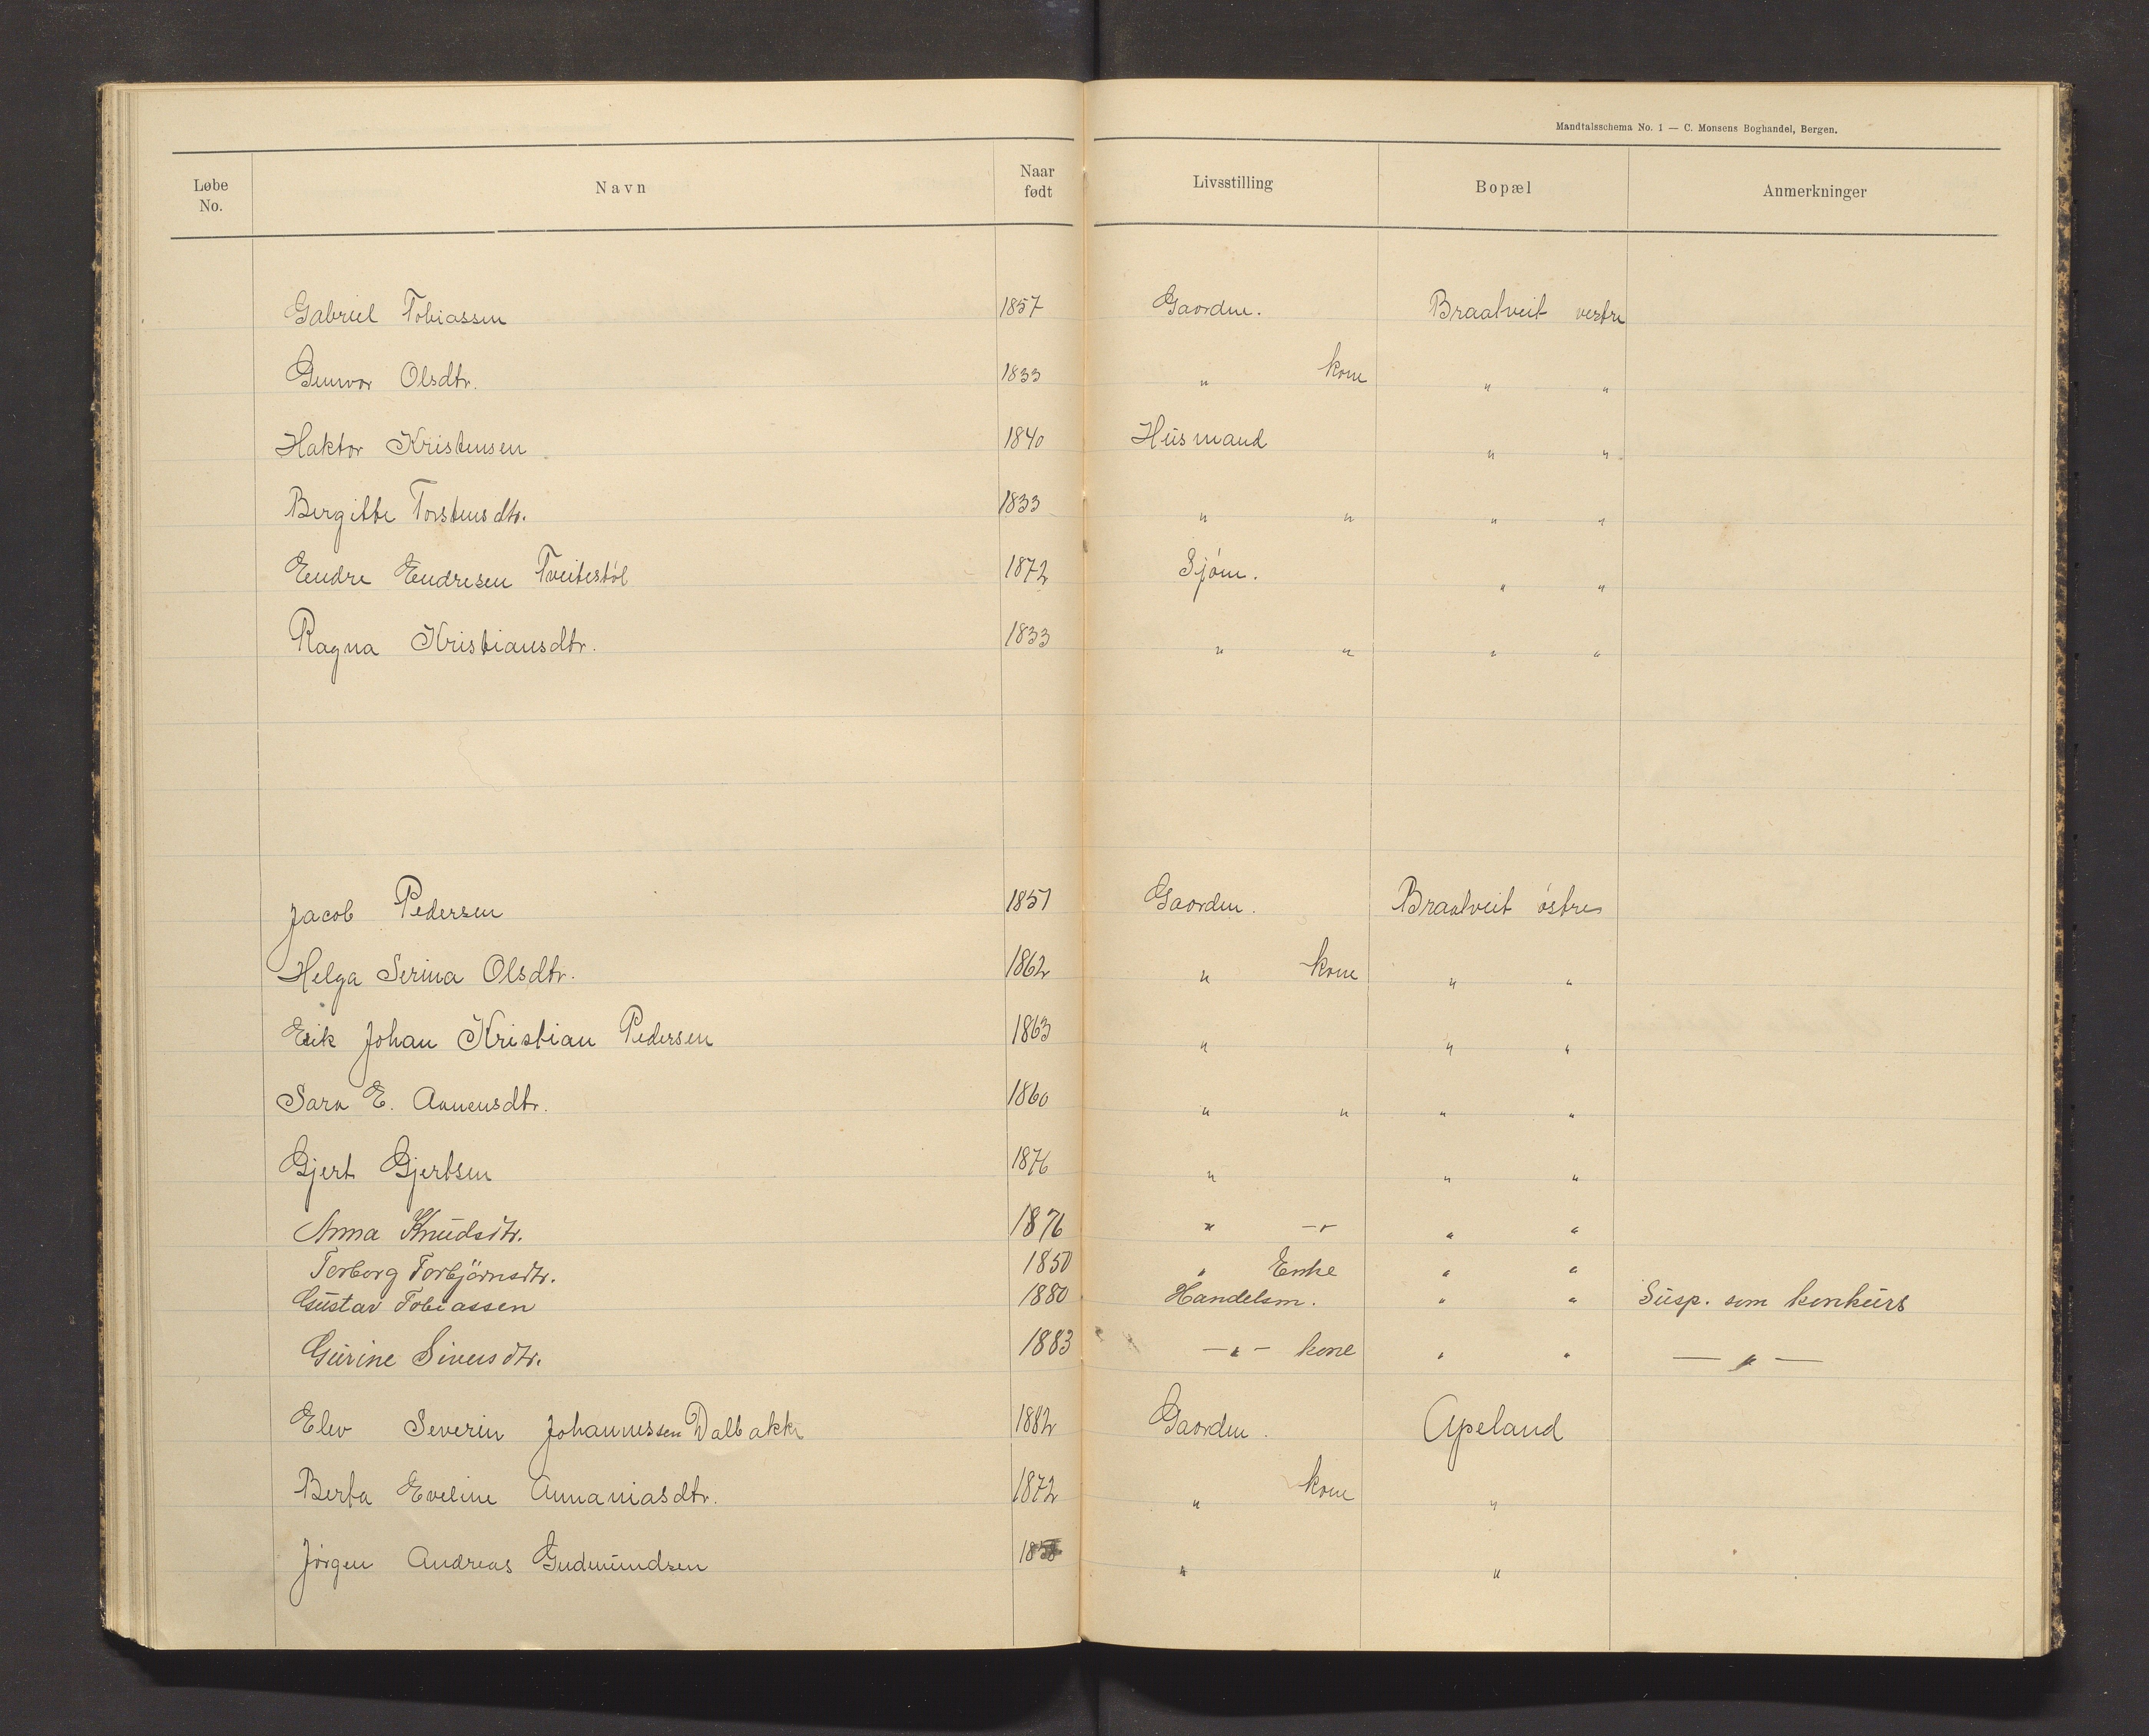 Mandtalsschema No. 1 — C. Monsens Boghandel, Bergen.
Løbe No. Navn Naar født Livsstilling Bopæl Anmerkninger
Gabriel Tobiassen 1857 Gaardm. Braatveit vestre
Gunvor Olsdtr. 1833 " kone " "
Haktor Kristensen 1840 Husmand " "
Bergitte Torstensdtr. 1833 " " " "
Endre Endresen Tveitestöl 1872 Sjóm. " "
Ragna Kristiansdtr. 1833 " " " "
Jacob Pedersen 1857 Gaardm. Braatveit östre
Helga Serina Olsdtr. 1862 " kone " "
Erik Johan Kristian Pedersen 1863 " " "
Sara E. Aanensdtr. 1860 " " " "
Gjert Gjertsen 1876 " " "
Anna Knudsdtr. 1876 " -"- " "
Torborg Torbjörnsdtr. 1850 " Enke " "
Gustav Tobiassen 1880 Handelsm. " " Susp. som konkurs
Gurine Sivensdtr. 1883 -"- kone " " -"-
Elev Severin Johannessen Dalbakk 1882 Gaardm. Apeland
Berta Eveline Annaniasdtr. 1872 " kone "
Jörgen Andreas Gudmundsen " "